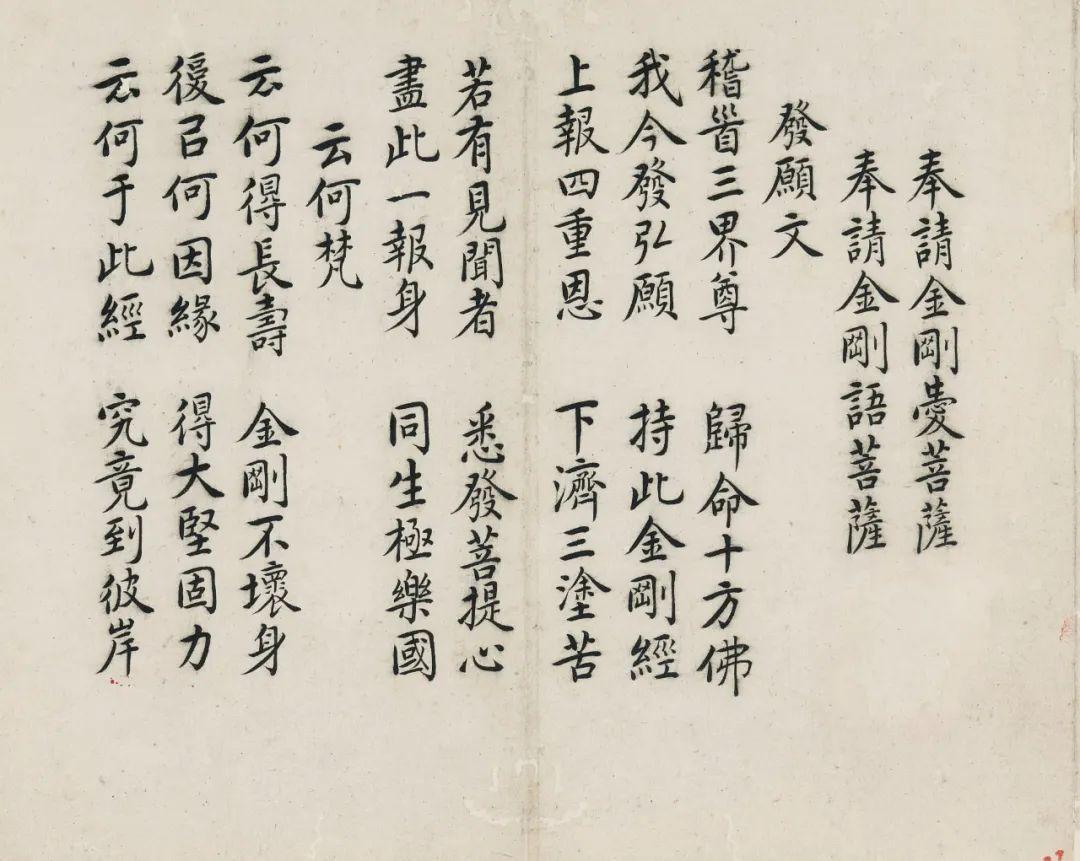 奉請金剛愛菩薩
奉請金剛語菩薩
發願文
稽首三界尊 歸命十方佛
我今發弘願 持此金剛經
上報四重恩 下濟三塗苦
若有見聞者 悉發菩提心
盡此一報身 同生極樂國
云何梵
云何得長壽 金剛不壞身
復㠯何因緣 得大堅固力
云何于此經 究竟到彼岸